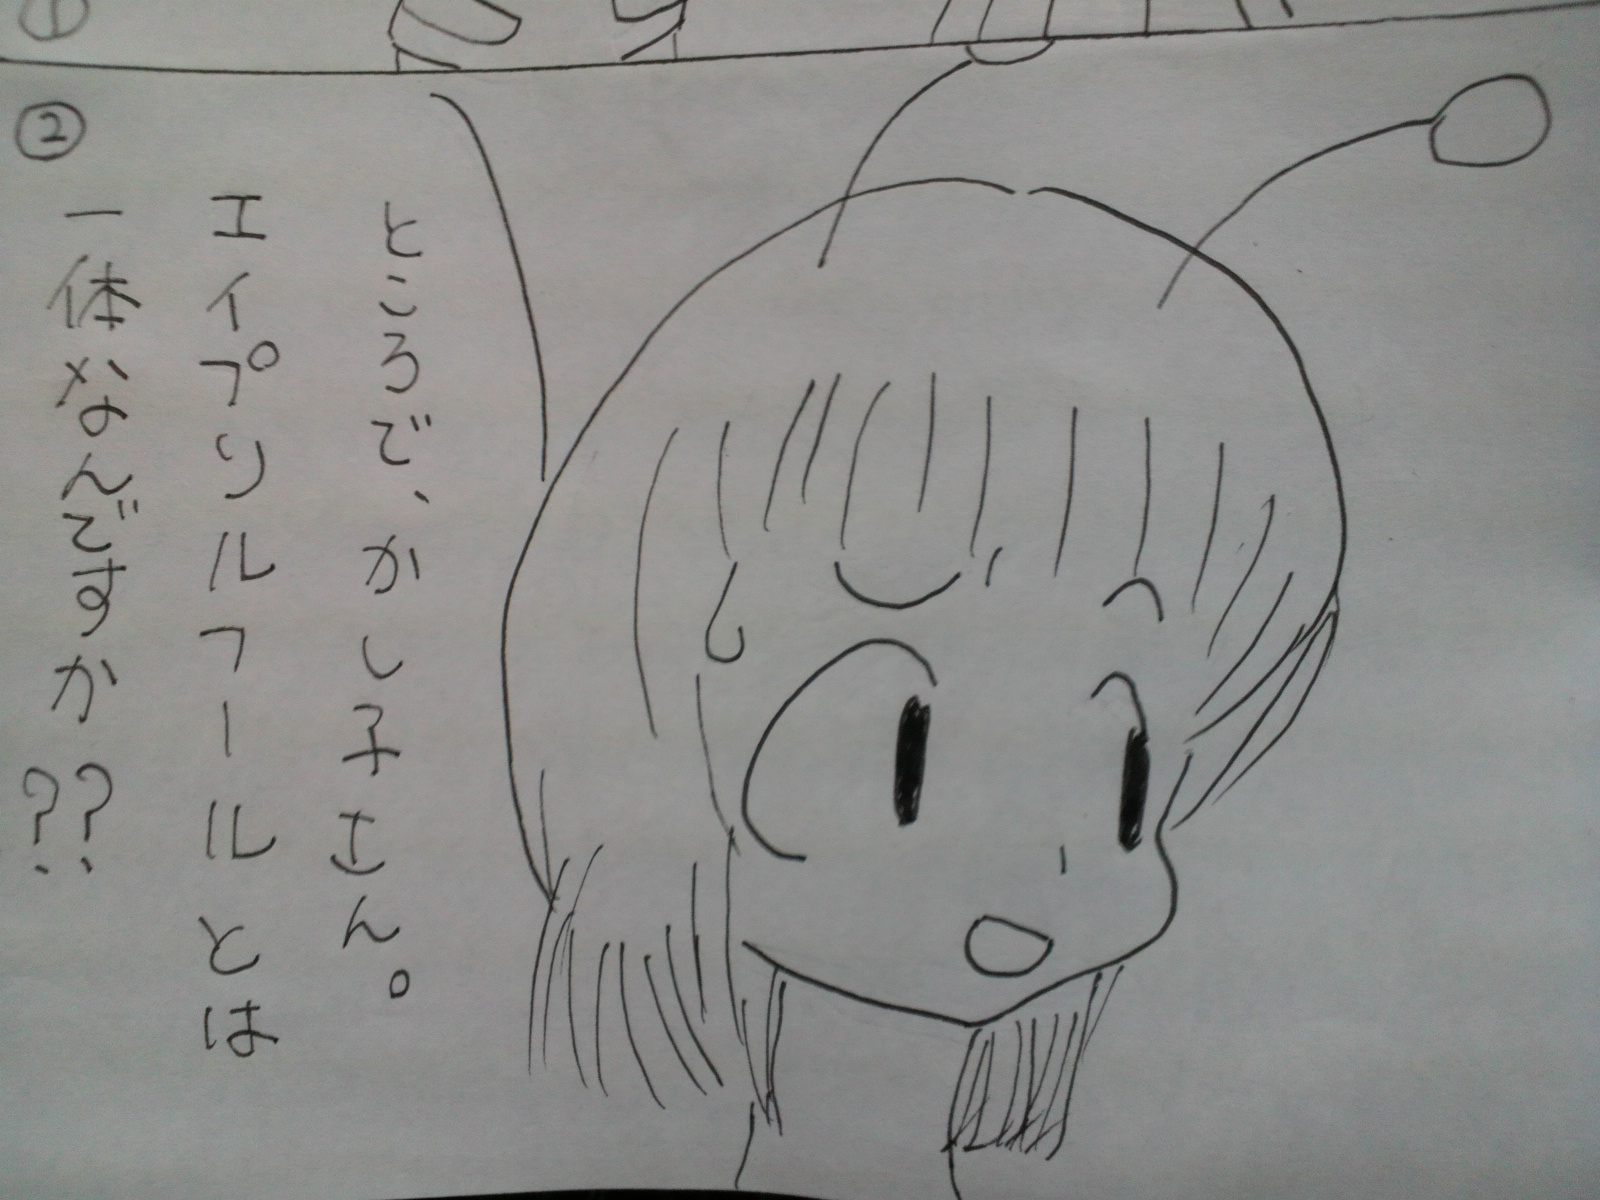 ①
②
ところで、かし子さん。
エイプリルフールとは
一体なんですか??